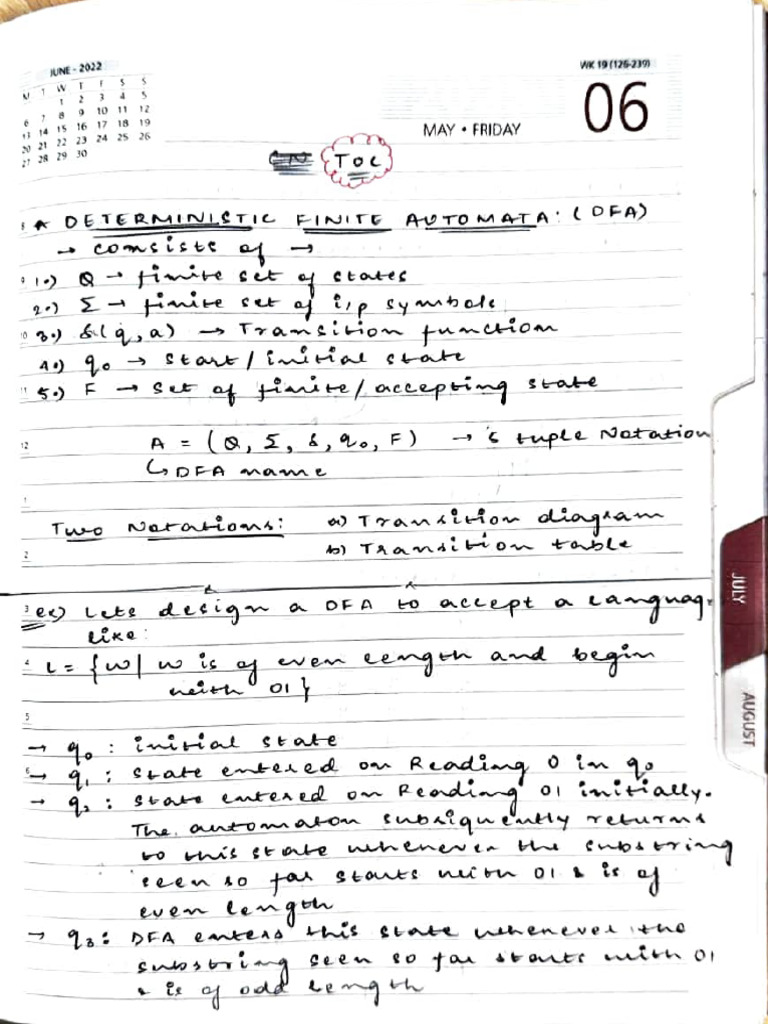 JUNE - 2022
M T W T F S S
1 2 3 4 5
6 7 8 9 10 11 12
13 14 15 16 17 18 19
20 21 22 23 24 25 26
27 28 29 30
WK 19 (126-239)
06
MAY • FRIDAY
TOC
* DETERMINISTIC FINITE AUTOMATA: (DFA)
→ consists of →
9 1.) Q → finite set of states
2.) Σ → finite set of i/p symbols
10 3.) δ(q,a) → Transition function
4.) q₀ → Start/initial state
11 5.) F → Set of finite/accepting state
12 A = (Q, Σ, δ, q₀, F) → 5 tuple Notation
↳ DFA name
1
Two Notations: a) Transition diagram
2 b) Transition table
3 ex) Lets design a DFA to accept a languag.
like:
4 L = {w| w is of even length and begin
with 01}
5
→ q₀ : initial state
6 → q₁ : State entered on Reading 0 in q₀
→ q₂ : State entered on Reading 01 initially.
The automaton subsiquently returns
to this state whenever the substring
seen so far starts with 01 & is of
even length
→ q₃ : DFA enters this state whenever the
substring seen so far starts with 01
& is of odd length
JULY
AUGUST